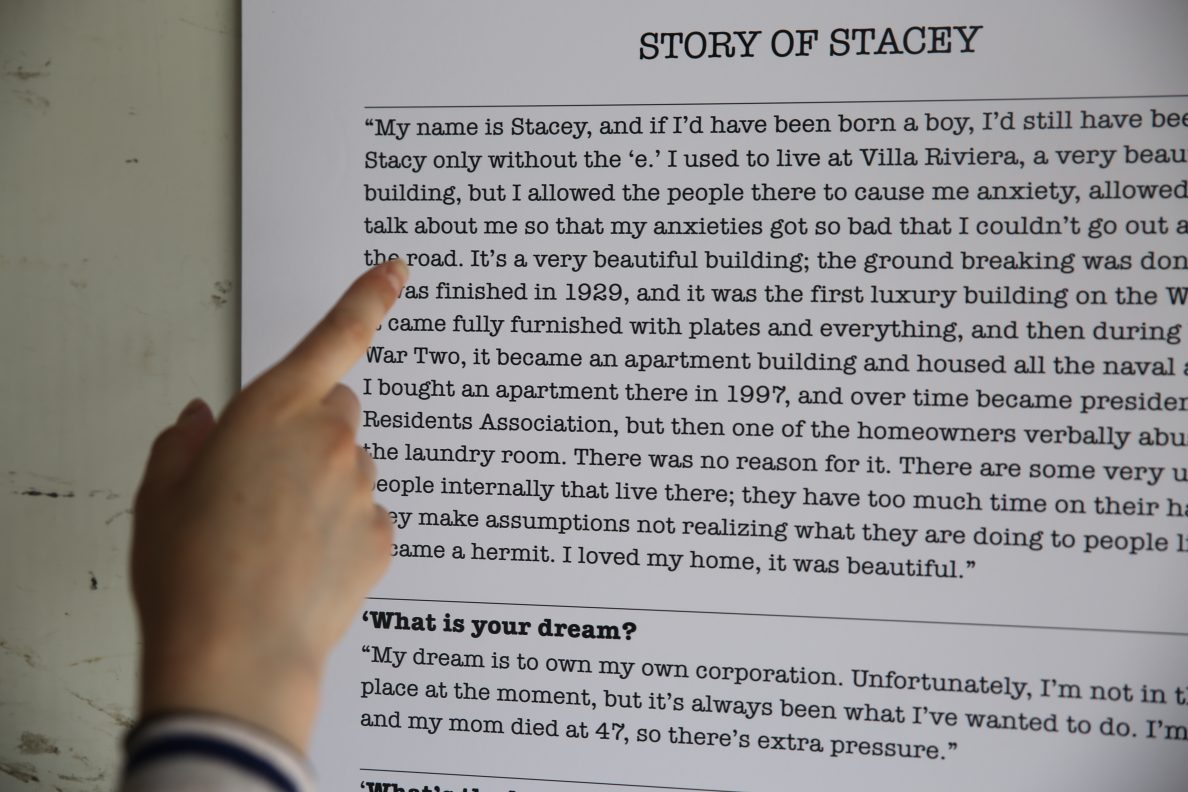 STORY OF STACEY
“My name is Stacey, and if I’d have been born a boy, I’d still have
Stacy only without the ‘e.’ I used to live at Villa Riviera, a very
building, but I allowed the people there to cause me anxiety, allowed
talk about me so that my anxieties got so bad that I couldn’t go out
the road. It’s a very beautiful building; the ground breaking was
was finished in 1929, and it was the first luxury building on the
came fully furnished with plates and everything, and then during
War Two, it became an apartment building and housed all the naval
I bought an apartment there in 1997, and over time became
Residents Association, but then one of the homeowners verbally
the laundry room. There was no reason for it. There are some very
people internally that live there; they have too much time on their
make assumptions not realizing what they are doing to people
a hermit. I loved my home, it was beautiful.”
‘What is your dream?
“My dream is to own my own corporation. Unfortunately, I’m not in
place at the moment, but it’s always been what I’ve wanted to do. I’m
and my mom died at 47, so there’s extra pressure.”